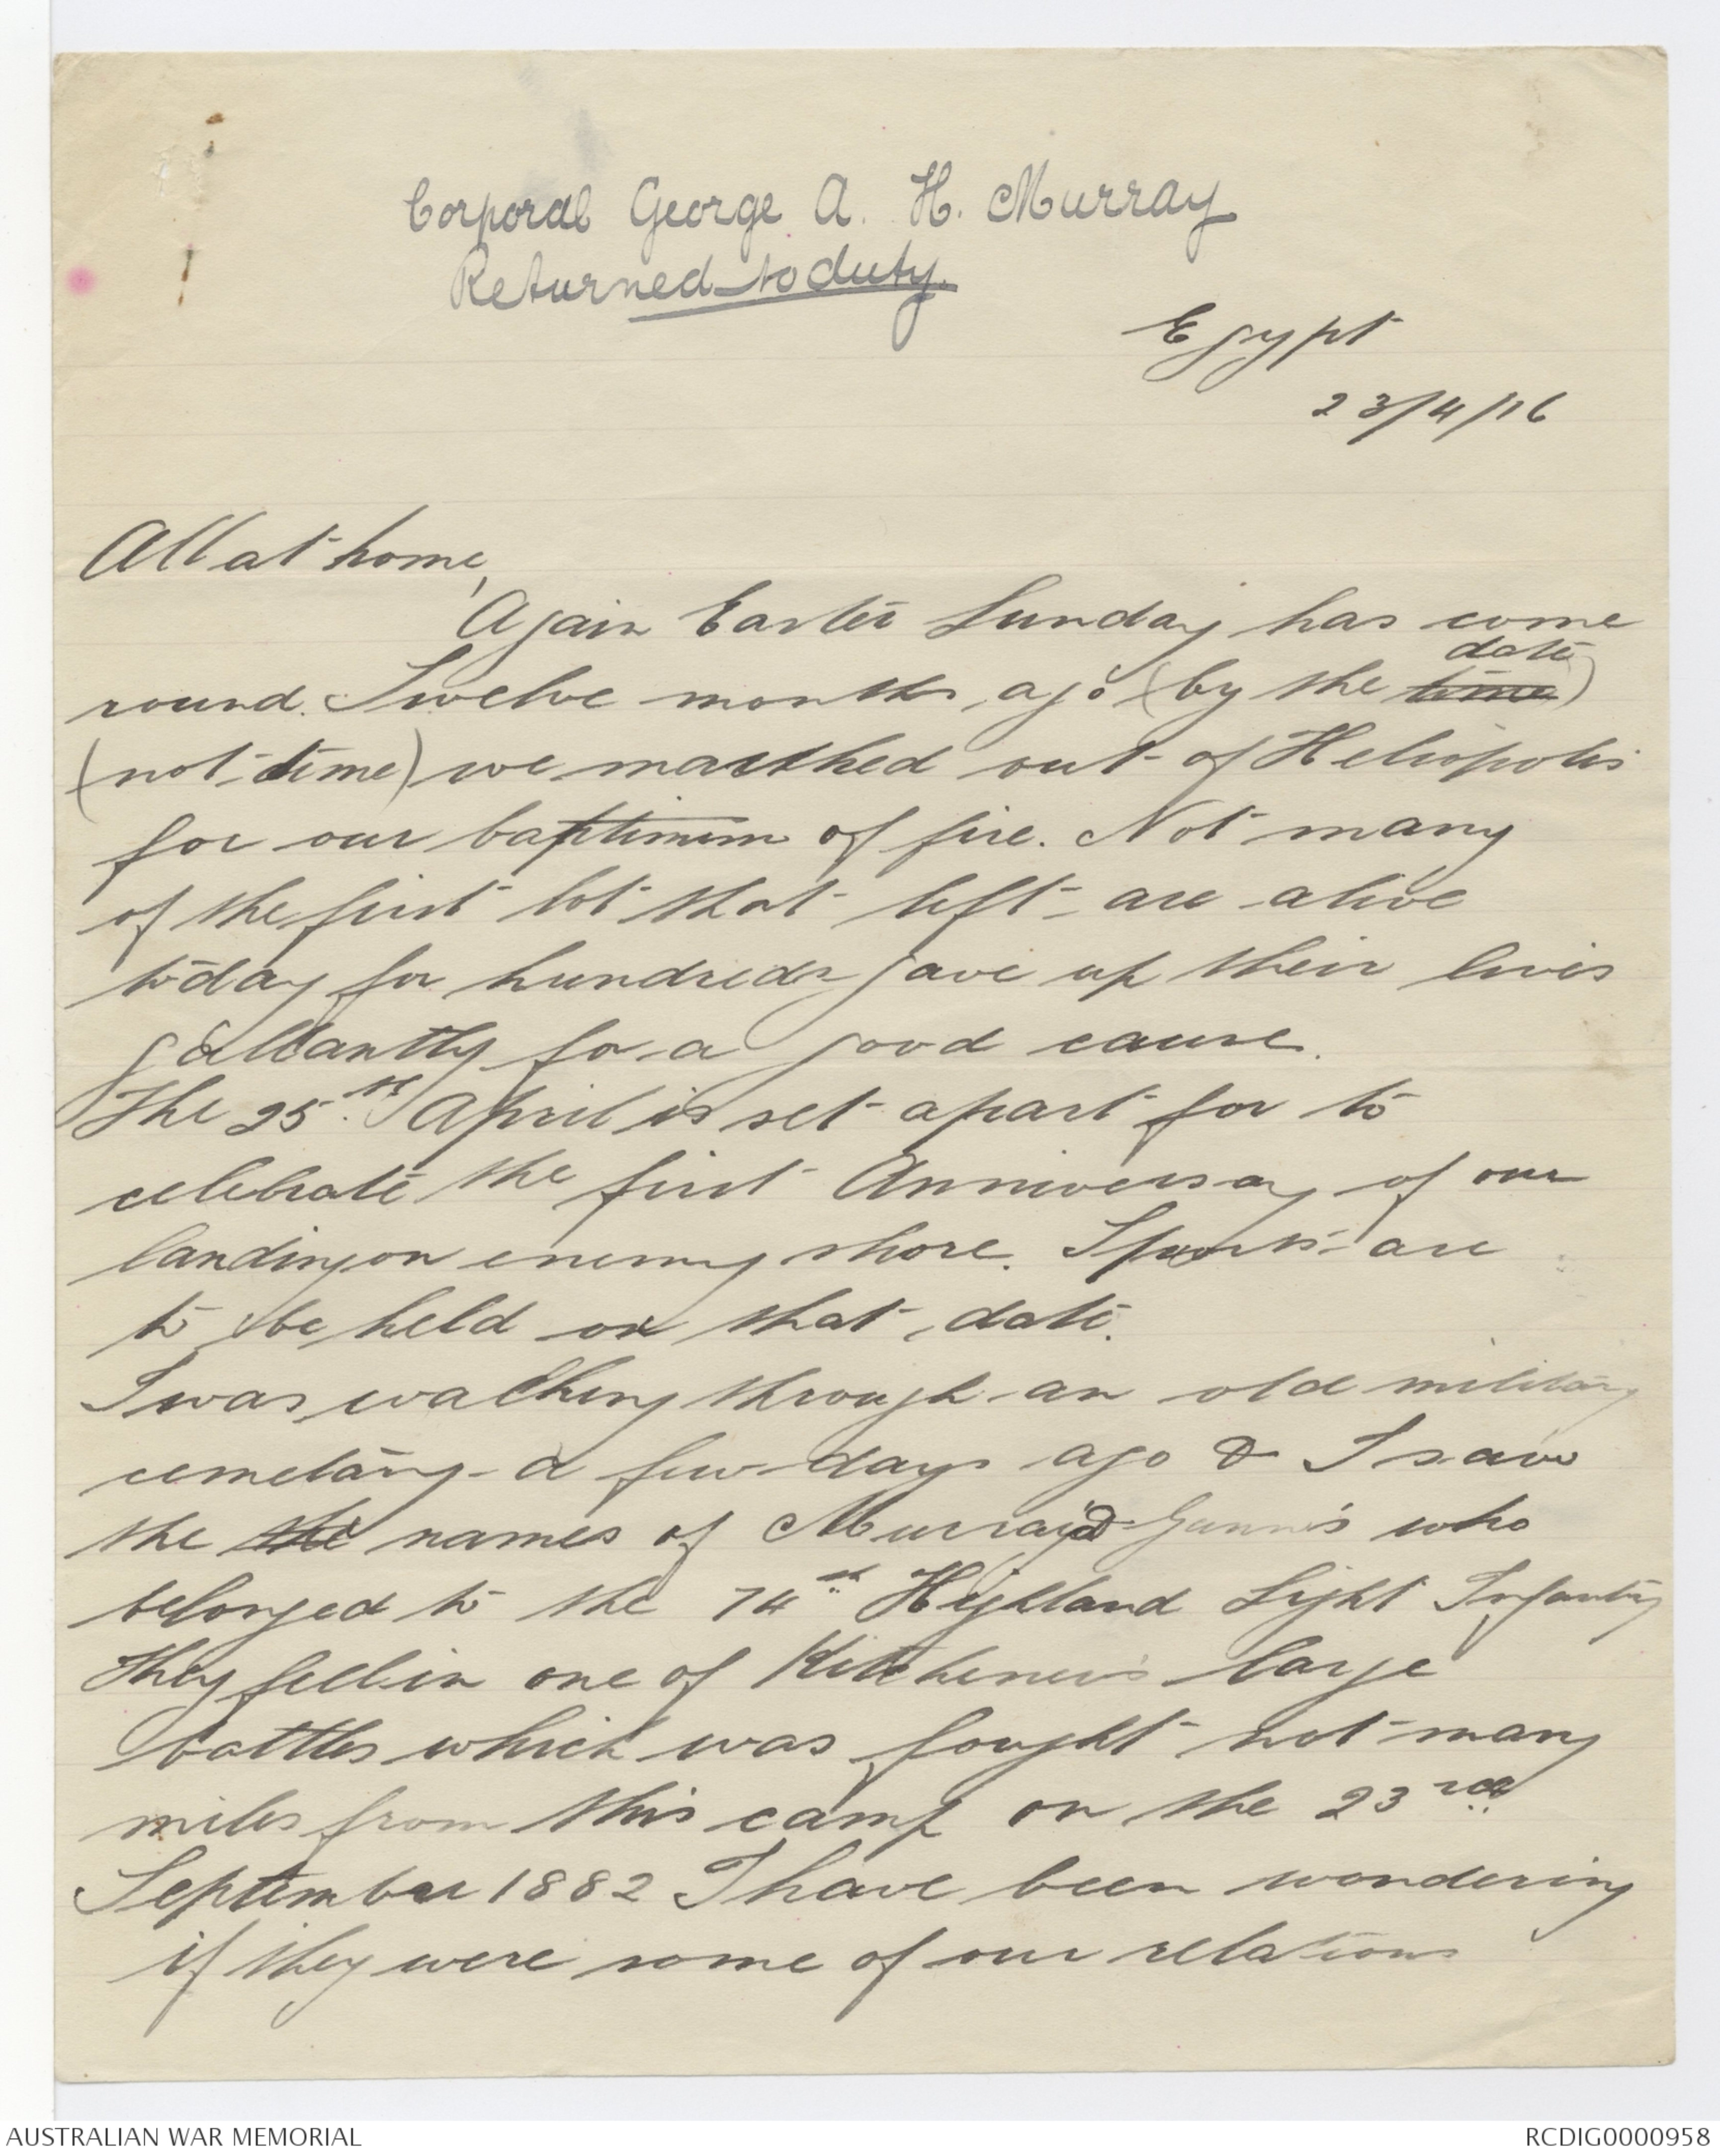 Corporal George A. H. Murray
Returned to duty.
Egypt
23/4/16
All at home,
Again Easter Sunday has come
round. Twelve months ago (by the time date)
(not time) we marched out of Heliopolis
for our baptimim of fire. Not many
of the first lot that left are alive
today for hundreds gave up their lives
gallantly for a good cause.
The 25th April is set apart for to
celebrate the first Anniversary of our
landing on enemy shore. Sports are
to be held on that date.
I was walking through an old military
cemetary a few days ago & I saw
the the names of Murray & Gunn's who
belonged to the 74th Highland Light Infantry
They fell in one of Kitchener's large
battles which was fought not many
miles from this camp on the 23rd
September 1882 I have been wondering
if they were some of our relations
AUSTRALIAN WAR MEMORIAL
RCDIG0000958